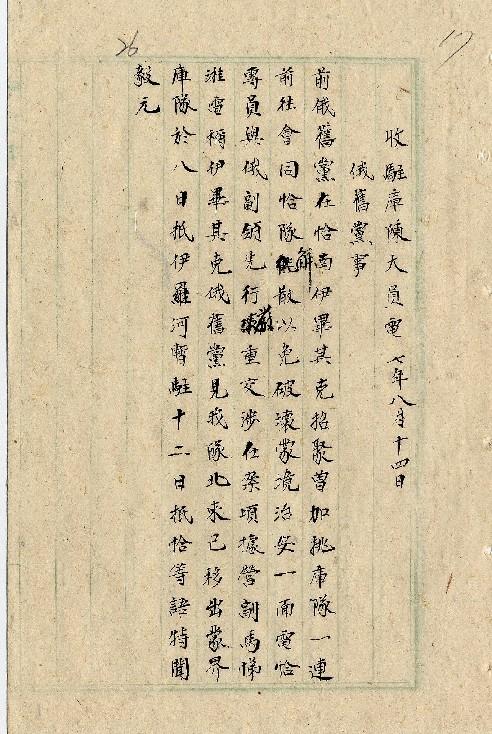 17
26
收駐庫陳大員電 七年八月十四日
俄舊黨事
前俄舊黨在恰南伊畢其克招聚曾加挑庫隊一連
前往會同恰隊解散以免破壞蒙境治安一面電恰
專員與俄副領先行嚴重交涉在案頃據營副馬悌
淮電稱伊畢其克俄舊黨見我隊北來已移出蒙界
庫隊於八日抵伊羅河暫駐十二日抵恰等語特聞
毅元